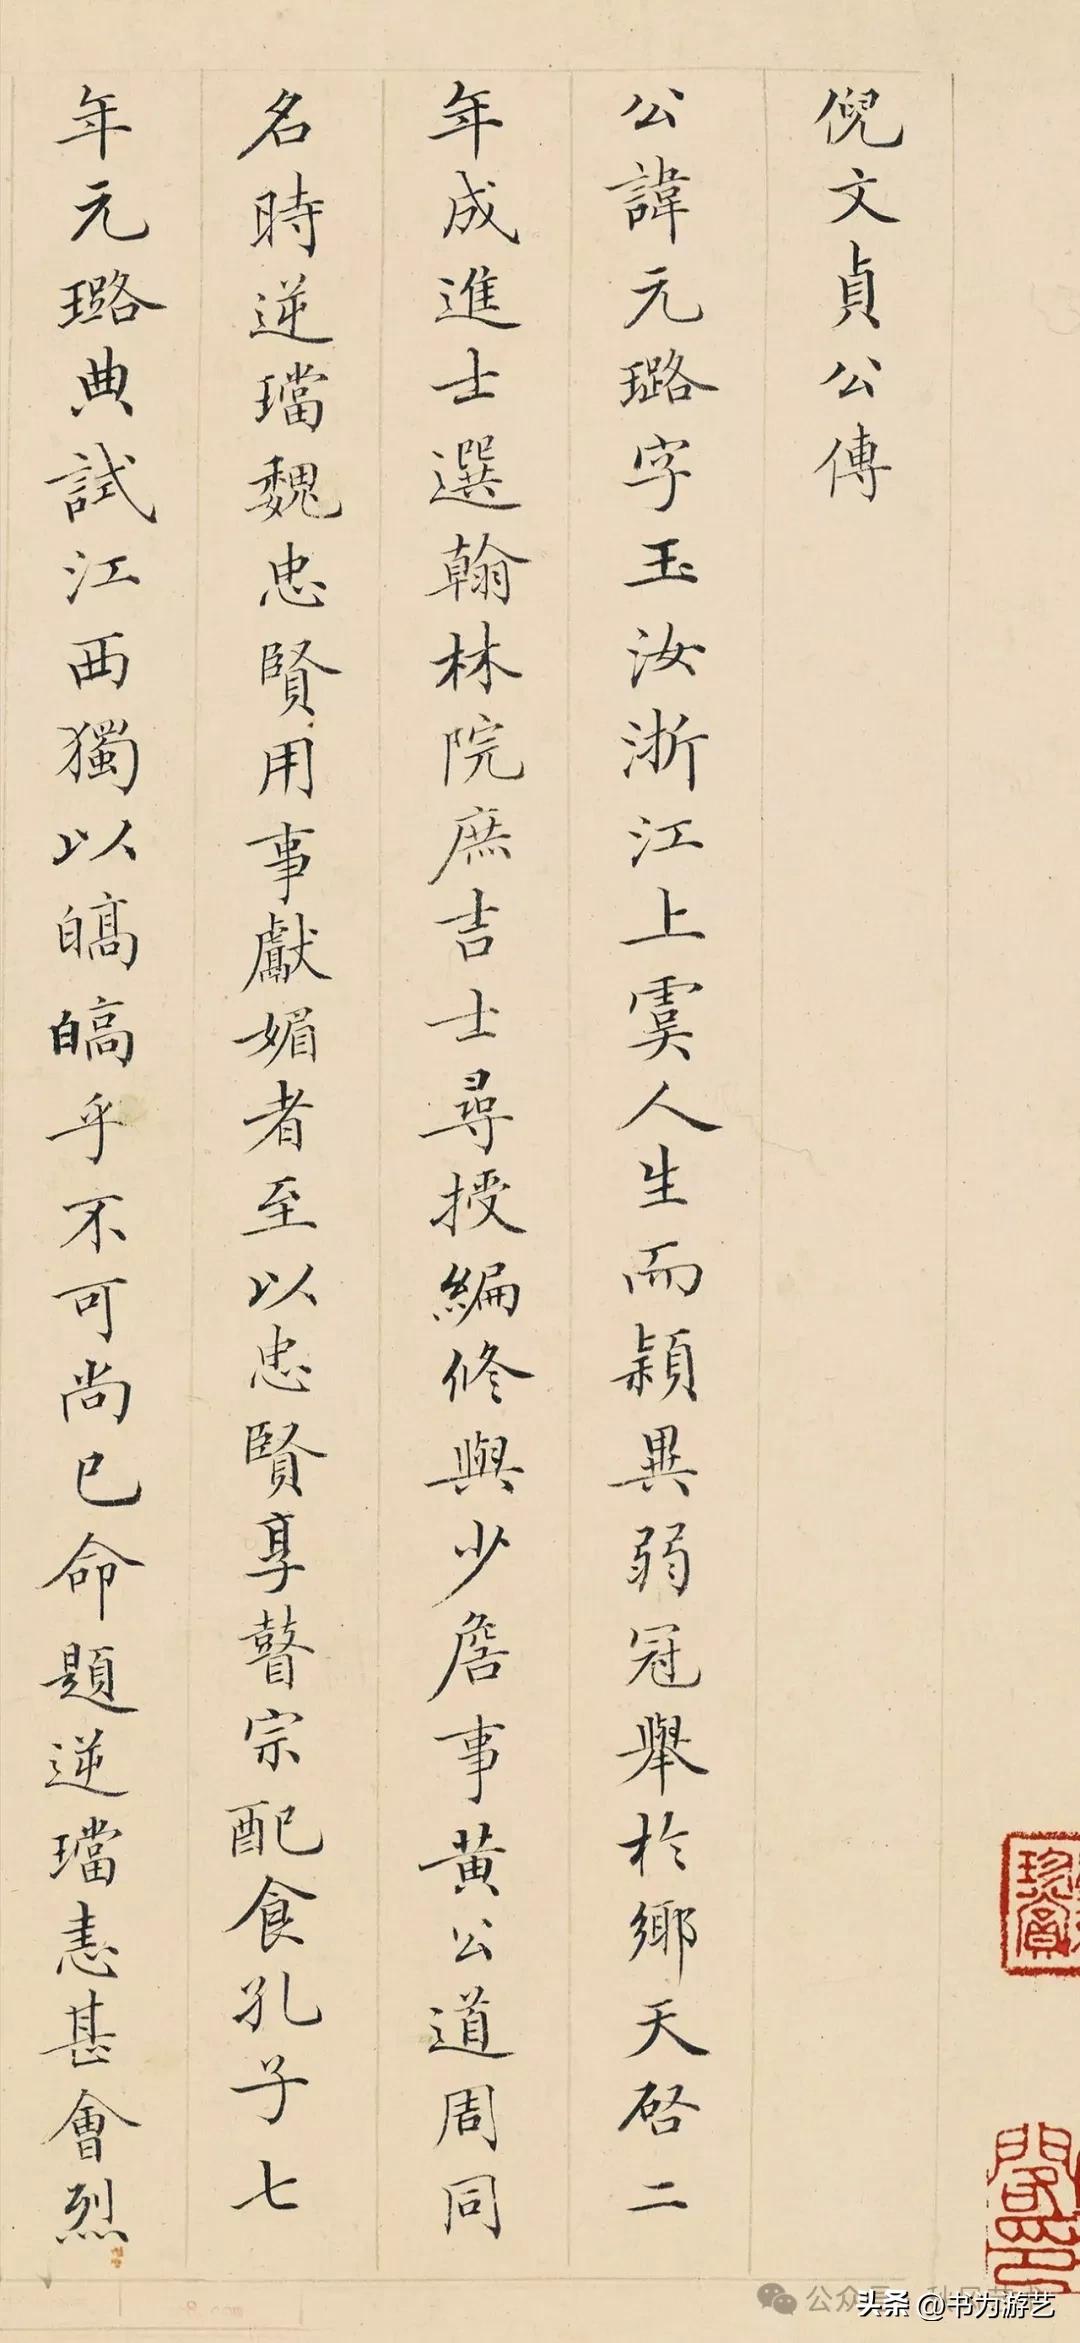 倪文貞公傳
公諱元璐字玉汝浙江上虞人生而穎異弱冠舉於鄉天啓二
年成進士選翰林院庶吉士尋授編修與少詹事黄公道周同
名時逆璫魏忠賢用事獻媚者至以忠賢享瞽宗配食孔子七
年元璐典試江西獨以皜皜乎不可尚已命題逆璫恚甚會烈
珍賞
公众号
头条 @书为游艺